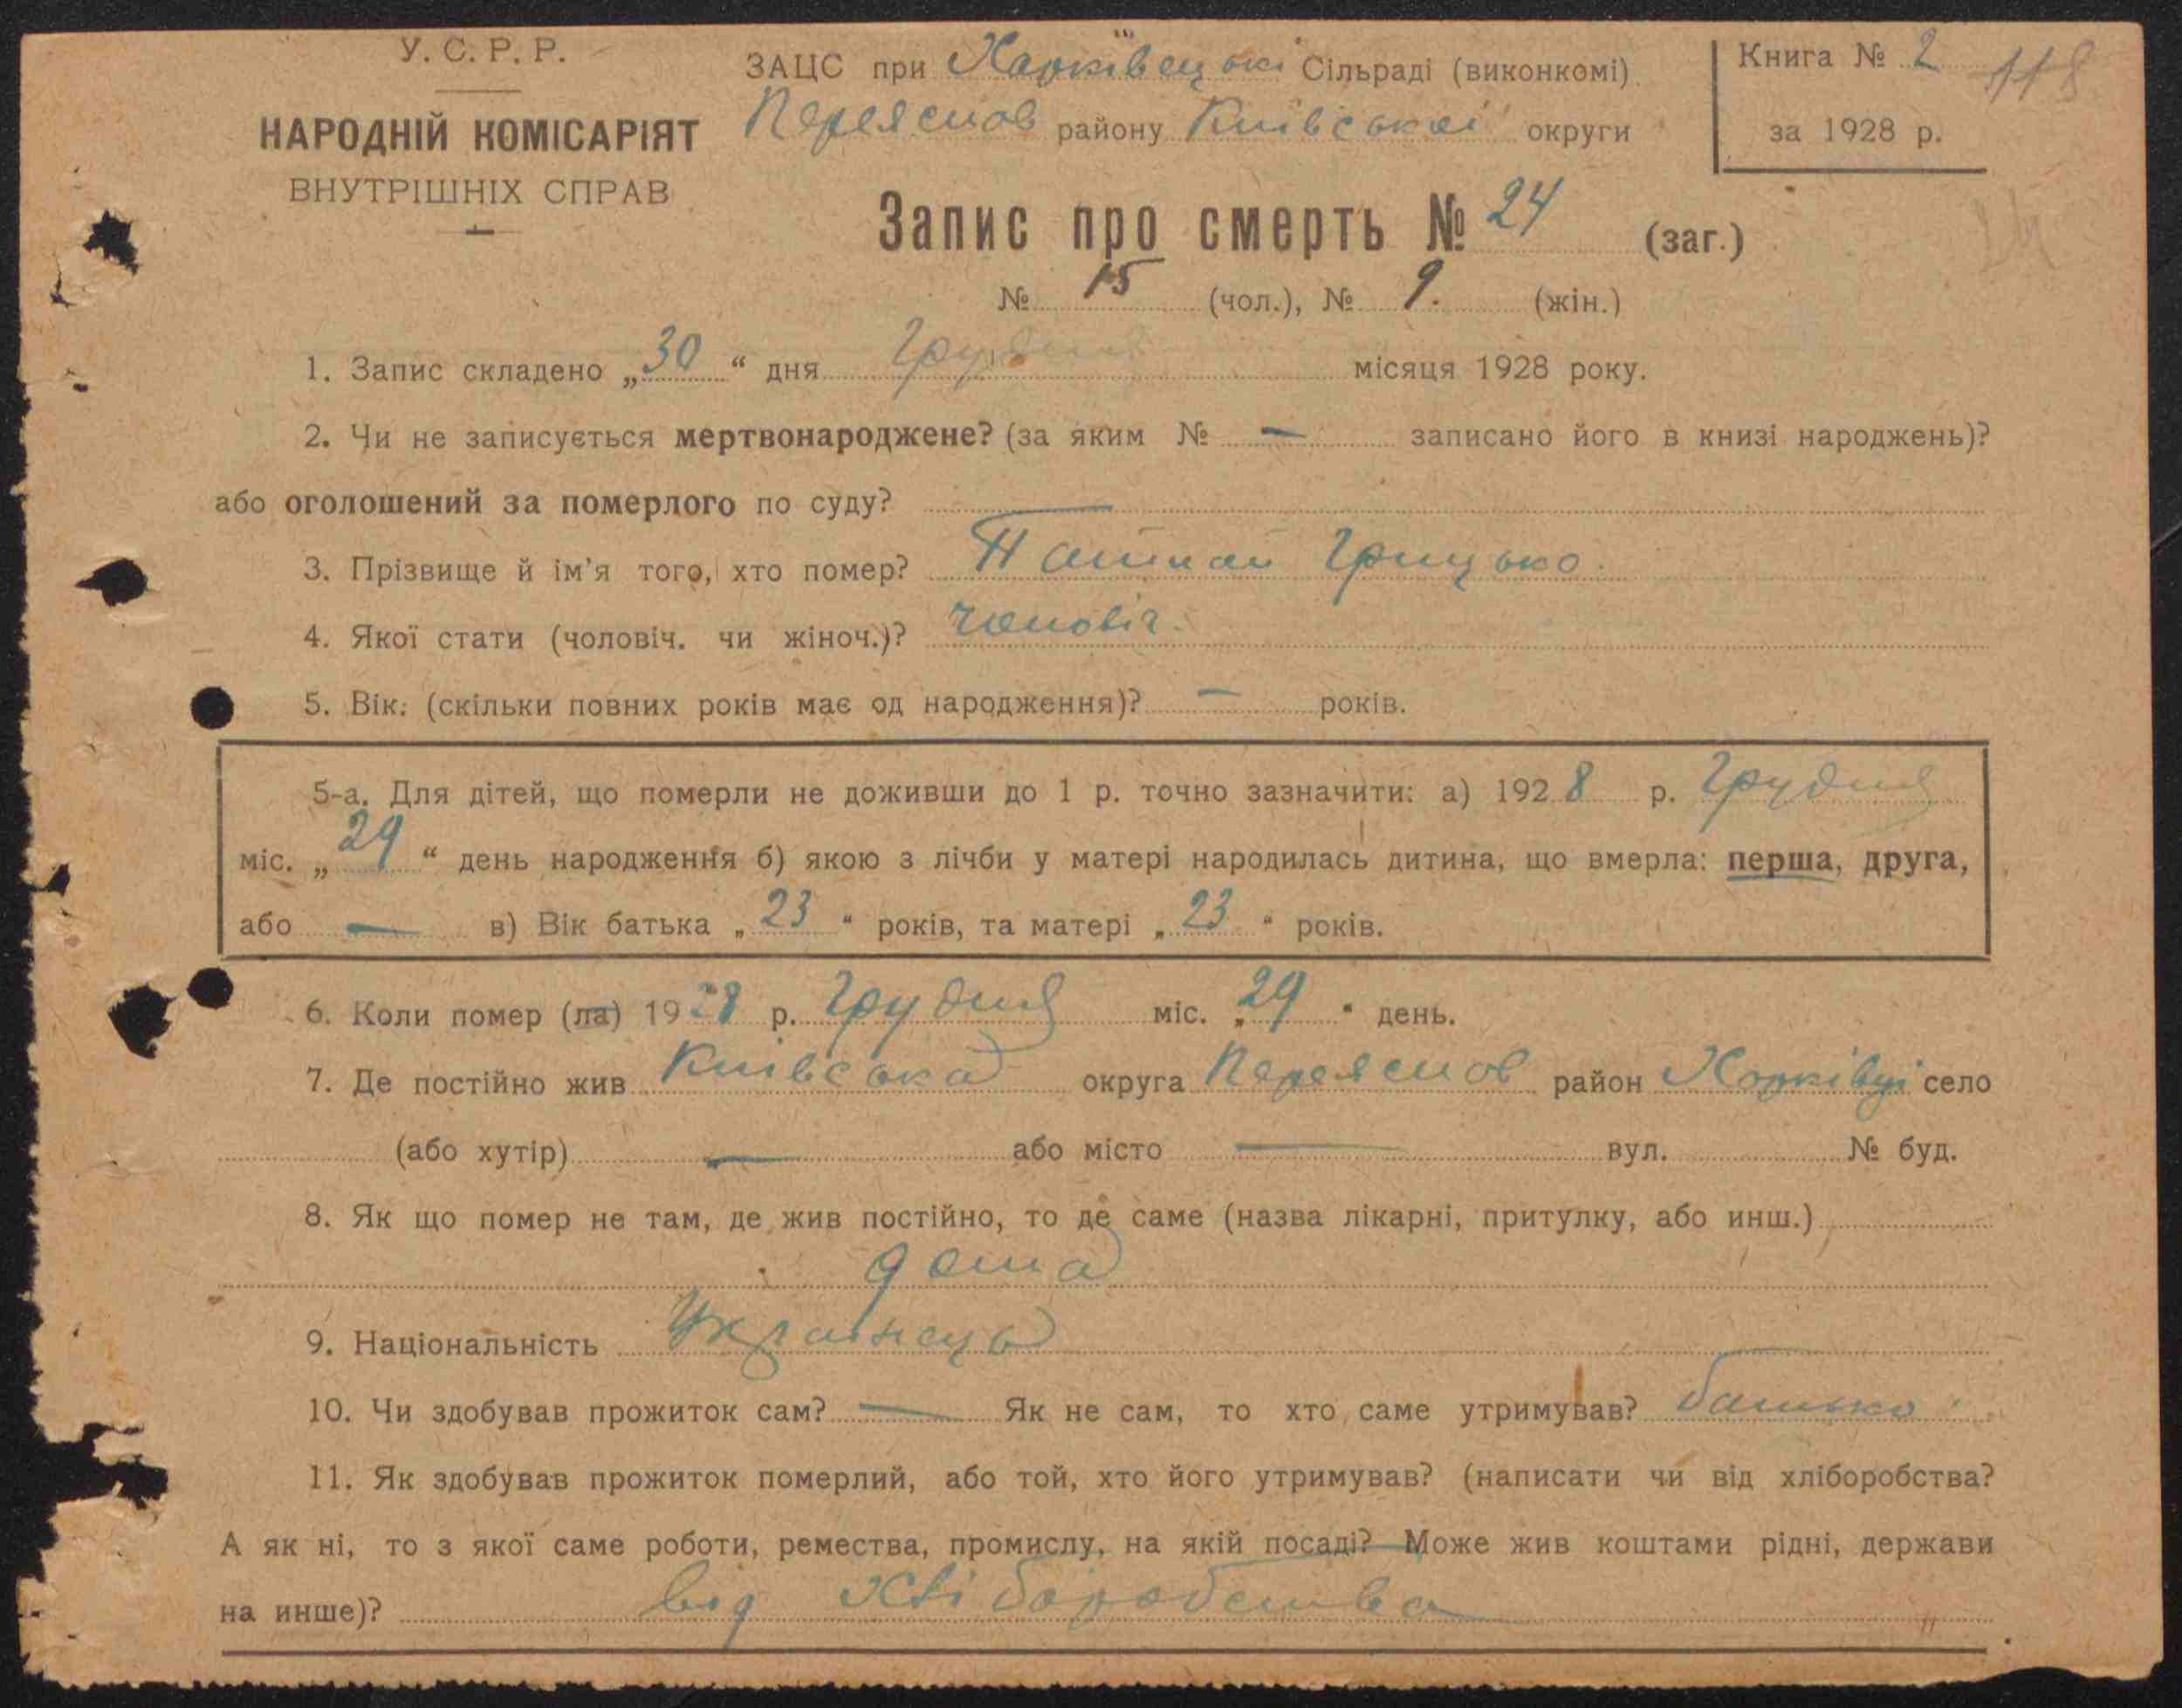 У. С. Р. Р.
НАРОДНІЙ КОМІСАРІЯТ
ВНУТРІШНІХ СПРАВ
ЗАЦС при Харківецькі Сільраді (виконкомі)
Переяслов району Київської округи
Книга № 2 118
за 1928 р.
Запис про смерть № 24 (заг.)
№ 15 (чол.), № 9. (жін.)
1. Запис складено „30“ дня Грудня місяця 1928 року.
2. Чи не записується мертвонароджене? (за яким № — записано його в книзі народжень)?
або оголошений за померлого по суду? —
3. Прізвище й ім'я того, хто помер? Грицько.
4. Якої стати (чоловіч. чи жіноч.)? чоловіч.
5. Вік: (скільки повних років має од народження)? — років.
5-а. Для дітей, що померли не доживши до 1 р. точно зазначити: а) 1928 р. Грудня
міс. „29“ день народження б) якою з лічби у матері народилась дитина, що вмерла: перша, друга,
або — в) Вік батька „23“ років, та матері „23“ років.
6. Коли помер (ла) 1928 р. Грудня міс. „29“ день.
7. Де постійно жив Київська округа Переяслов район Харківці село
(або хутір) — або місто — вул. № буд.
8. Як що помер не там, де жив постійно, то де саме (назва лікарні, притулку, або инш.)
дома
9. Національність Українець
10. Чи здобував прожиток сам? — Як не сам, то хто саме утримував? батько.
11. Як здобував прожиток померлий, або той, хто його утримував? (написати чи від хліборобства?
А як ні, то з якої саме роботи, ремества, промислу, на якій посаді? Може жив коштами рідні, держави
на инше)? від хліборобства